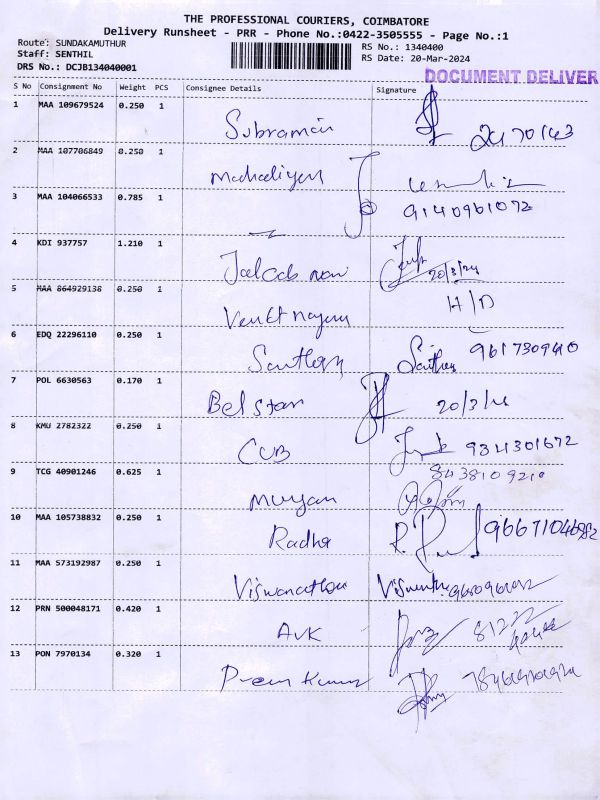 THE PROFESSIONAL COURIERS, COIMBATORE
Delivery Runsheet - PRR - Phone No.:0422-3505555 - Page No.:1
Route: SUNDAKAMUTHUR
RS No.: 1340400
Staff: SENTHIL
RS Date: 20-Mar-2024
DRS No.: DCJB134040001
DOCUMENT DELIVER
S No Consignment No Weight PCS Consignee Details Signature
1 MAA 109679524 0.250 1 Subramani
2 MAA 107706849 0.250 1
3 MAA 104066533 0.785 1 9140961072
4 KDI 937757 1.210 1 20/3/24
5 MAA 864929138 0.250 1 H/D
6 EDQ 22296110 0.250 1 Santhosh Santhosh
7 POL 6630563 0.170 1 Bel star 20/3/24
8 KMU 2782322 0.250 1 CUB 9344301672
9 TCG 40901246 0.625 1 Murugan 8438109210
10 MAA 105738832 0.250 1 Radha
11 MAA 573192987 0.250 1 Viswanathan
12 PRN 500048171 0.420 1 AVK
13 PON 7970134 0.320 1 Prem Kumar